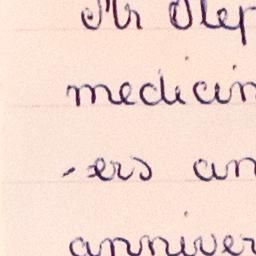 Mr Step
medicin
-ers an
anniver